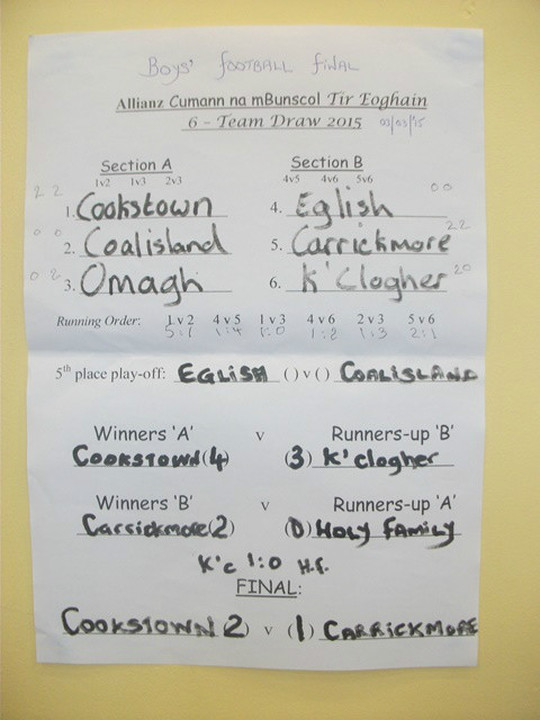 Boys' FOOTBALL FINAL
Allianz Cumann na mBunscol Tir Eoghain
6 - Team Draw 2015 03/03/15
Section A Section B
1v2 1v3 2v3 4v5 4v6 5v6
2 2 1. Cookstown 4. Eglish 0 0
0 0 2. Coalisland 5. Carrickmore 22
0 2 3. Omagh 6. K'Clogher 20
Running Order: 1 v 2 4 v 5 1 v 3 4 v 6 2 v 3 5 v 6
5:1 1:4 1:0 1:2 1:3 2:1
5th place play-off: EGLISH ( ) v ( ) COALISLAND
Winners 'A' v Runners-up 'B'
COOKSTOWN (4) (3) K'clogher
Winners 'B' v Runners-up 'A'
Carrickmore (2) (0) HOLY FAMILY
K'c 1:0 H.F.
FINAL:
COOKSTOWN 2) v (1) CARRICKMORE